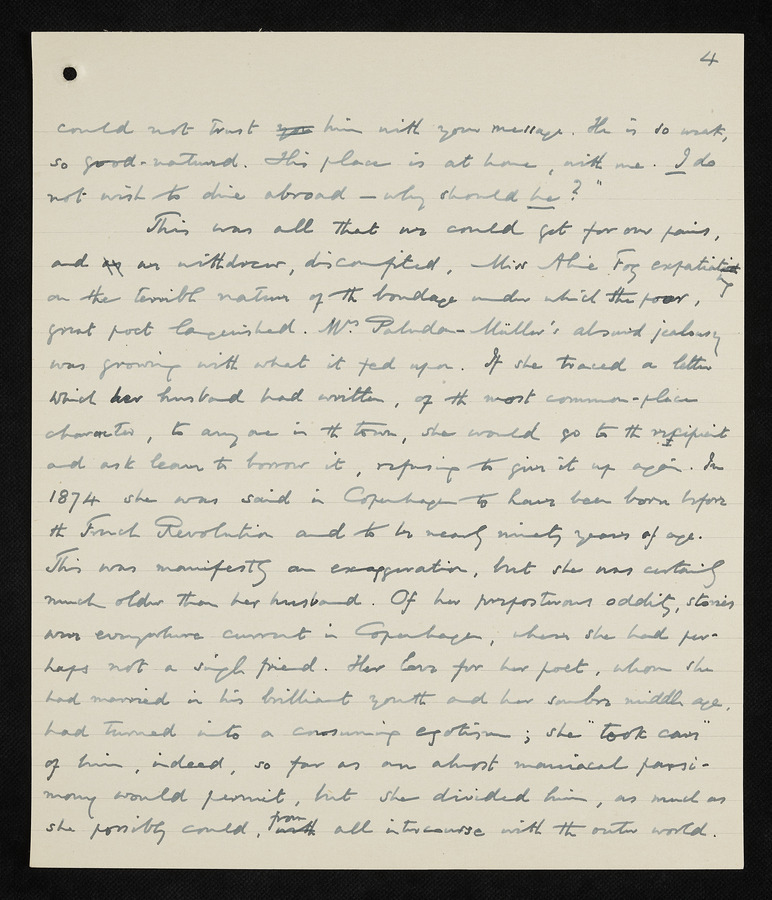 4
could not trust you him with your message. He is so weak,
so good-natured. His place is at home, with me. I do
not wish to dine abroad – why should he?"
This was all that we could get for our pains,
and we withdrew, discomfited, Miss Aline Fog expatiating
on the terrible nature of the bondage under which the poor,
great poet languished. Mrs Paludan-Müller's absurd jealousy
was growing with what it fed upon. If she traced a letter
which her husband had written, of the most common-place
character, to any one in the town, she would go to the recipient
and ask leave to borrow it, refusing to give it up again. In
1874 she was said in Copenhagen to have been born before
the French Revolution and to be nearly ninety years of age.
This was manifestly an exaggeration, but she was certainly
much older than her husband. Of her preposterous oddity, stories
were everywhere current in Copenhagen, where she had per-
haps not a single friend. Her love for her poet, whom she
had married in his brilliant youth and her sombre middle age,
had turned into a consuming egotism; she "took care"
of him, indeed, so far as an almost maniacal parsi-
mony would permit, but she divided him, as much as
she possibly could, from all intercourse with the outer world.